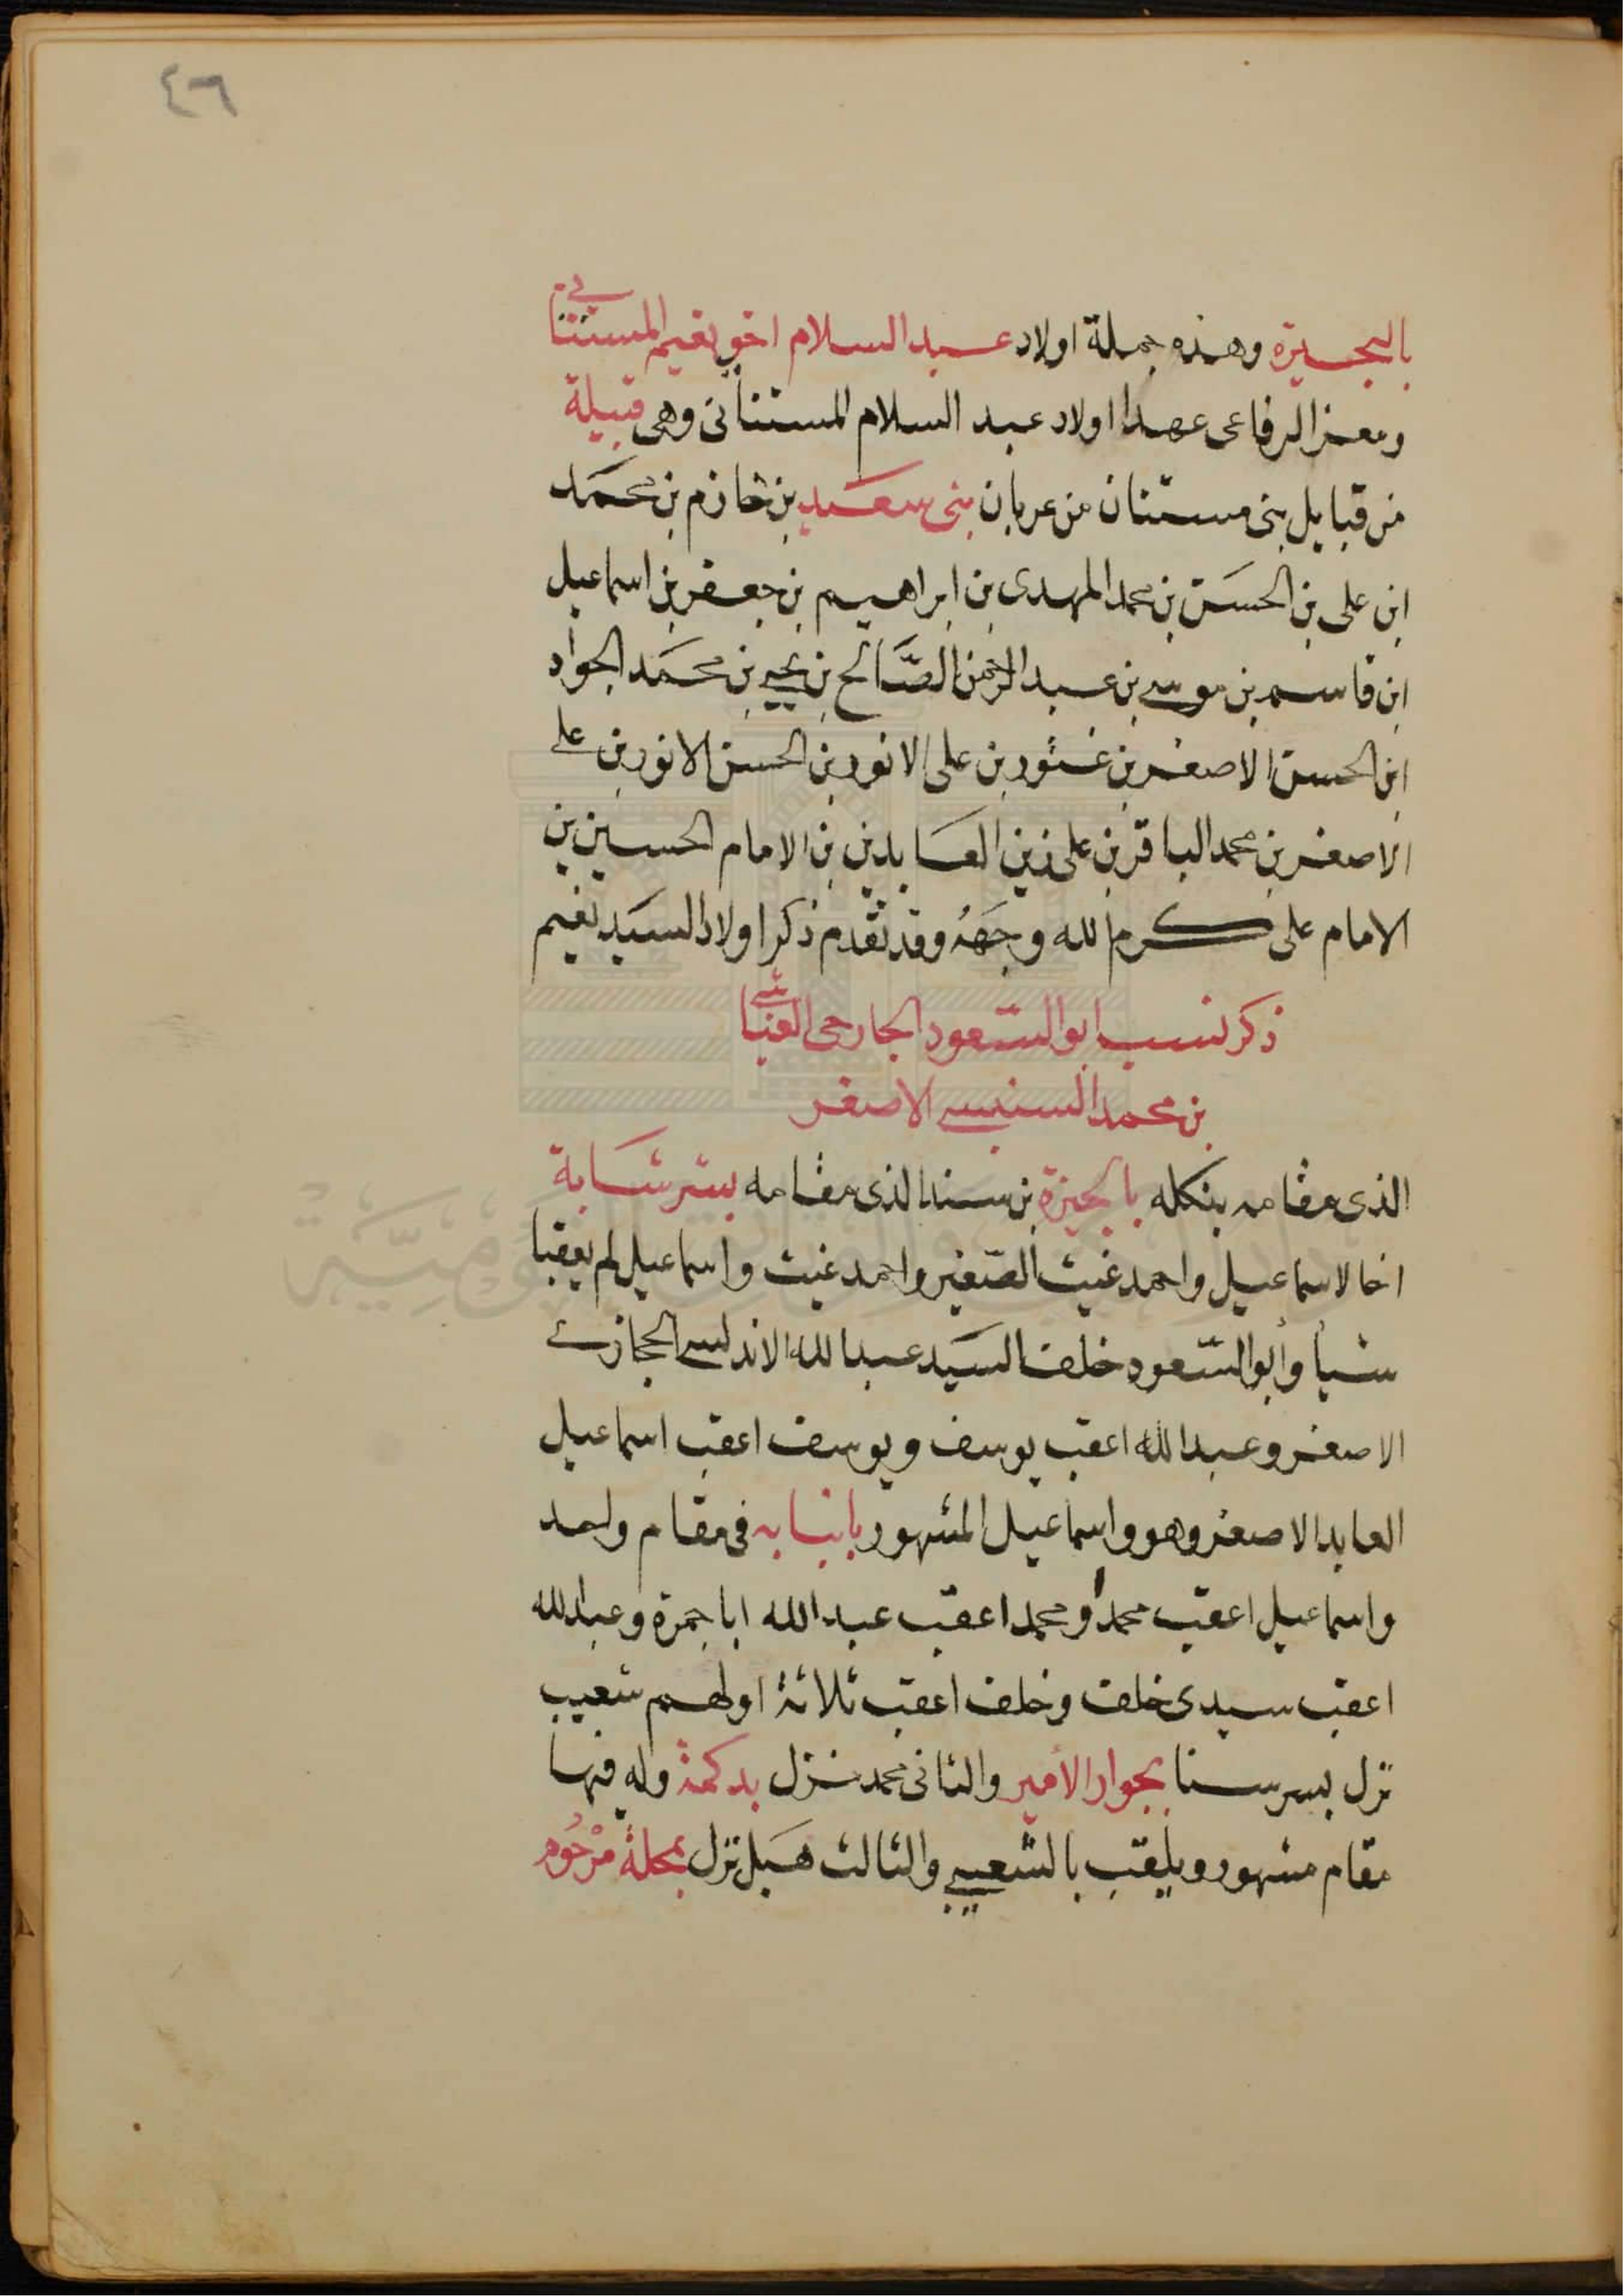 ٤٦
بالبحيرة وهذه جملة اولاد عبد السلام اخو نعيم المستنانى
ومعز الرفاعى عهدا اولاد عبد السلام المستنانى وهى قبيلة
من قبايل بنى مستنان من عربان بنى سعيد بن خازم بن محمد
ابن على بن الحسن بن محمد المهدى بن ابراهيم بن جعفر بن اسماعيل
ابن قاسم بن موسى بن عبد الرحمن الصَّالح بن يحيى بن محمد الجواد
ابن الحسن الاصغر بن على الانور بن الحسن الانور بن على
الاصغر بن محمد الباقر بن على زين العابدين بن الامام الحسين بن
الامام على كرم الله وجهَهُ وقد تقدم ذكر اولاد السيد نعيم
ذكر نسب ابو السّعود الجارحى
بن محمد السنبسى الاصغر
الذى مقامه بنكله بالجيزة بن سند الذى مقامه ببئر شابة
اخا لاسماعيل واحمد غيث الصّغير واحمد غيث واسماعيل لم يعقبا
شيأ وأبو السّعود خلف السيد عبد الله الاندلسى الحجازى
الاصغر وعبد الله اعقب يوسف ويوسف اعقب اسماعيل
العابد الاصغر وهو واسماعيل المشهور بانبابه فى مقام واحد
واسماعيل اعقب محمدا ومحمد اعقب عبد الله ابا جمرة وعبد الله
اعقب سيدى خلف وخلف اعقب ثلاثة اولهم شعيب
نزل بسرسنا بجوار الأمير والثانى محمد نزل بدكمة وله فيها
مقام مشهور ويلقب بالشعيبى والثالث هَبل نزل بمحلة مَرْحُوم